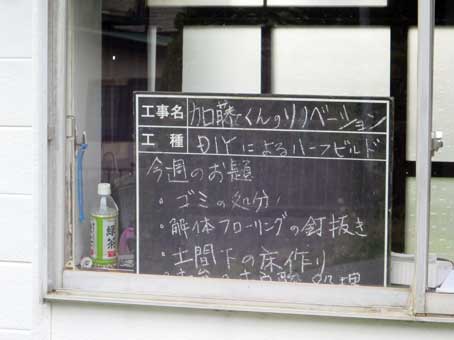 工事名 加藤くんのリノベーション
工種 DIYによるハーフビルド
今週のお題
・ゴミの処分
・解体フローリングの釘抜き
・土間下の床作り
処理
緑茶